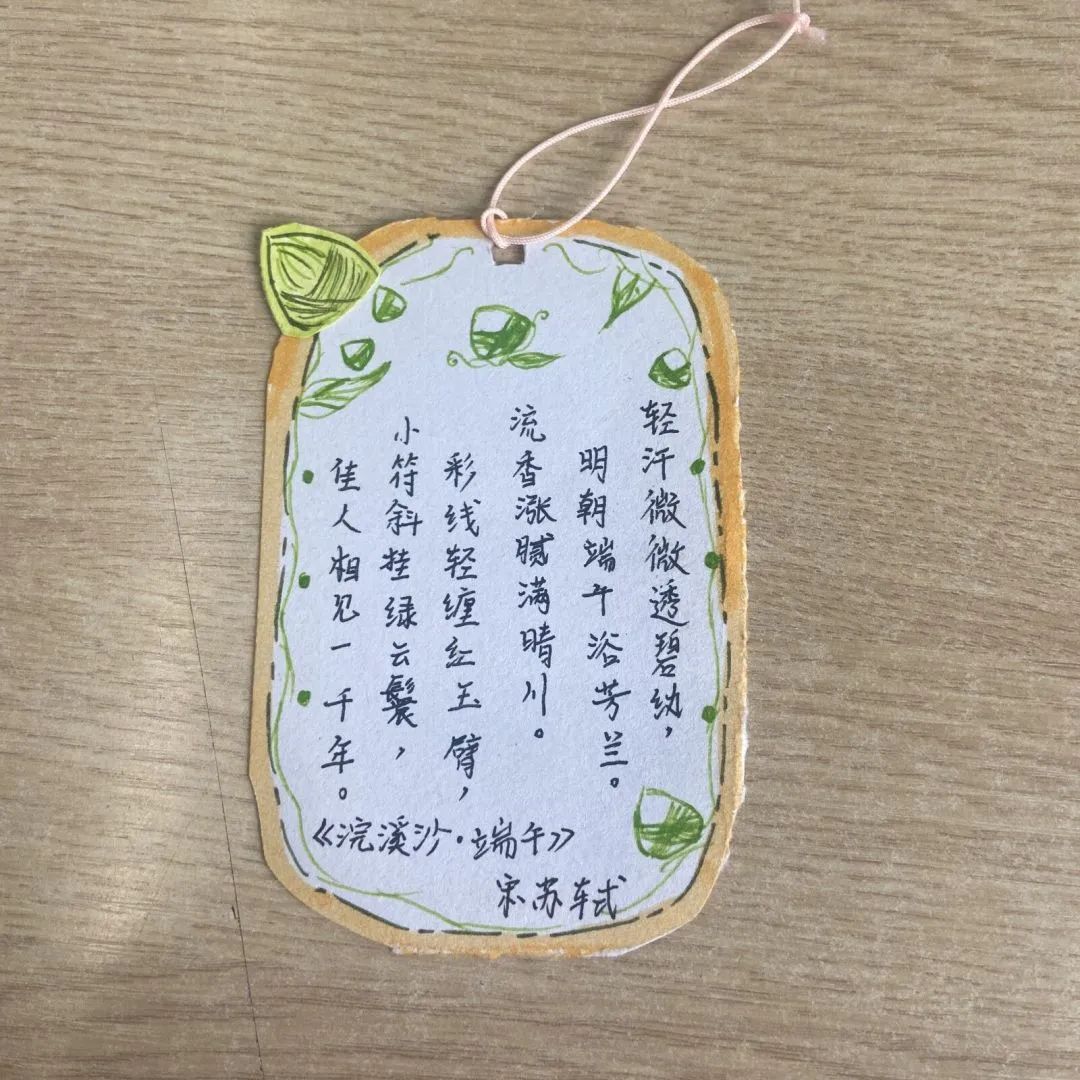 轻汗微微透碧纨，
明朝端午浴芳兰。
流香涨腻满晴川。
彩线轻缠红玉臂，
小符斜挂绿云鬟，
佳人相见一千年。
《浣溪沙·端午》
宋苏轼